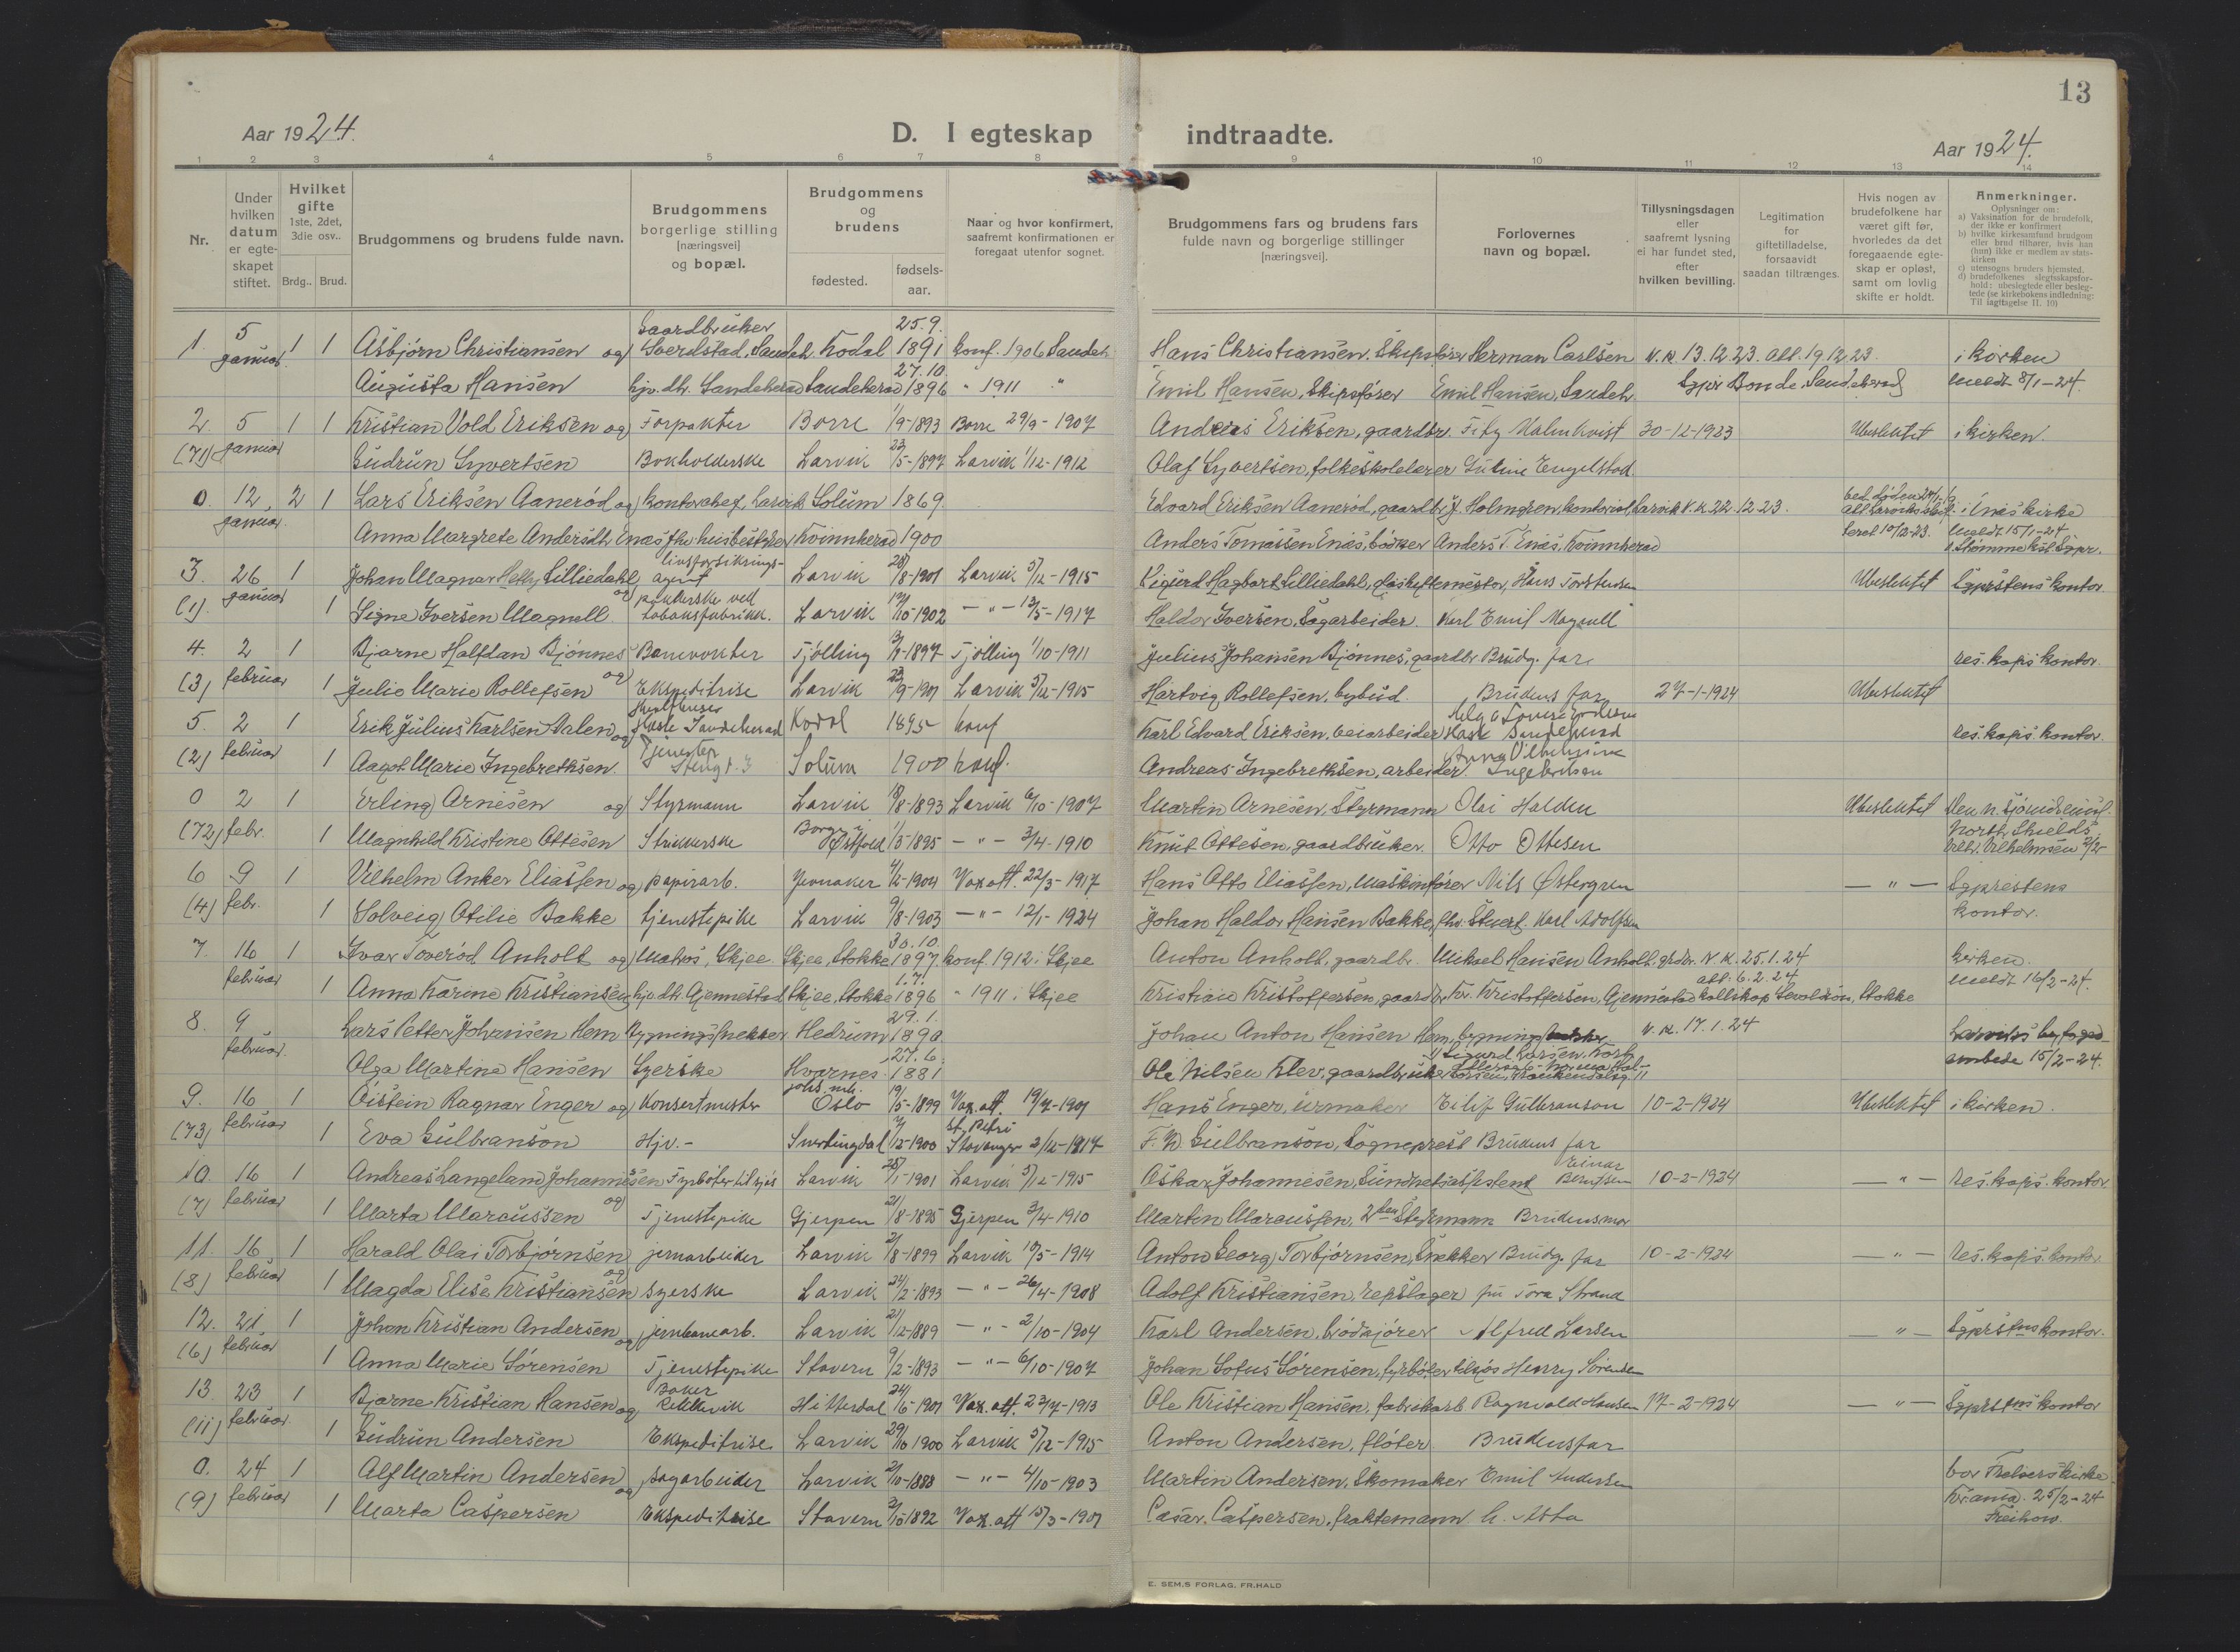 13
Aar 1924.
D. I egteskap indtraadte.
Aar 1924.
1 2 3 4 5 6 7 8 9 10 11 12 13 14
Nr.
Under hvilken datum er egte-skapet stiftet.
Hvilket gifte 1ste, 2det, 3die osv..
Brdg.. Brud.
Brudgommens og brudens fulde navn.
Brudgommens borgerlige stilling [næringsvei] og bopæl.
Brudgommens og brudens
fødested.
fødsels-aar.
Naar og hvor konfirmert, saafremt konfirmationen er foregaat utenfor sognet.
Brudgommens fars og brudens fars fulde navn og borgerlige stillinger [næringsvei].
Forlovernes navn og bopæl.
Tillysningsdagen eller saafremt lysning ei har fundet sted, efter hvilken bevilling.
Legitimation for giftetilladelse, forsaavidt saadan tiltrænges.
Hvis nogen av brudefolkene har været gift før, hvorledes da det foregaaende egte-skap er opløst, samt om lovlig skifte er holdt.
Anmerkninger.
Oplysninger om:
a) Vaksination for de brudefolk, der ikke er konfirmert
b) hvilke kirkesamfund brudgom eller brud tilhører, hvis han (hun) ikke er medlem av stats-kirken
c) utensogns bruders hjemsted.
d) brudefolkenes slegtsskapsfor-hold: ubeslegtede eller besleg-tede (se kirkebokens indledning: Til iagttagelse II. 10)
1. 5 januar 1 1 Asbjørn Christiansen og Gaardbruker Sverdstad, Sandeh. Kodal 25.9. 1891 konf. 1906 Sandeh. Hans Christiansen, Skipsfører Herman Carlsen V.K. 13.12.23. att. 19.12.23. i kirken
Augusta Hansen hjv. dtr. Sandeherad Sandeherad 27.10. 1896 " 1911 " Emil Hansen, Skipsfører Emil Hansen, Sandeh. Sgpr Bonde, Sandeherad meldt 8/1-24.
2. 5 1 1 Kristian Vold Eriksen og Forpakter Borre 1/9-1893 Borre 29/9-1907 Andreas Eriksen, gaardbr. Malmkvist 30-12-1923 Ubeslektet i kirken.
(71) januar Gudrun Syvertsen Bokholderske Larvik 23/5-1897 Larvik 1/12-1912 Olaf Syvertsen, folkeskolelærer Engelstad
0. 12 januar. 2 1 Lars Eriksen Aanerød og kontorchef, Larvik Solum 1869. Edvard Eriksen Aanerød, gaardbr. J. Holmgren, kontorist, Larvik V.K. 22.12.23. i Enæs kirke
Anna Margrete Andersdtr. Enæs fhv. husbestyrer Kvinnherad 1900 Anders Tomassen Enæs, bødker Anders T. Enæs, Kvinnherad meldt 15/1-24
3. 26 januar 1 Johan Magnar Helly Lilliedahl og livsforsikrings-agent Larvik 28/8-1901 Larvik 5/12-1915 Sigurd Hagbart Lilliedahl, Hans Torstensen Ubeslektet Sgprstens kontor.
(1). 1 Signe Iversen Magnell pakkerske ved tobaksfabrikk. Larvik 12/10 1902 -"- 13/5-1917 Haldor Iversen, Sagarbeider. Karl Emil Magnell
4. 2 1 Bjarne Halfdan Bjønnes og Banevokter Tjølling 1897 Tjølling 1/10-1911 Julius Johansen Bjønnes, gaardbr. Brudg. far. res. kaps kontor.
(3) februar 1 Julie Marie Rollefsen Ekspeditrise Larvik 23/9-1901 Larvik 5/12-1915 Hartvig Rollefsen, bybud. Brudens far 27-1-1924 Ubeslektet
5. 2 1 Erik Julius Karlsen Valen og Hvalfanger Hasle Sandeherad Kodal 1895 konf Karl Edvard Eriksen, veiarbeider Hasle Sandeherad res. kaps. kontor.
(2) februar 1 Aagot Marie Ingebrethsen. Tjenestep. Stengt. 3 Solum 1900 konf. Andreas Ingebrethsen, arbeider. Anna Vilhelmine Ingebretsen
0 2 1 Erling Arnesen og Styrmann Larvik 18/8-1893 Larvik 6/10-1907 Martin Arnesen, Styrmann Olai Halden Ubeslektet Den n. Sjømandsmis.
(72) febr. 1 Magnhild Kristine Ottesen Strikkerske Borge i Østfold 1/5 1895 -"- 3/4-1910 Knut Ottesen, gaardbruker. Otto Ottesen North Shields. Vilhelmsen 2/2
6 9 1 Vilhelm Anker Eliassen og papirarb. Jevnaker 4/2-1901 Vax. att. 22/3-1917 Hans Otto Eliassen, maskinfører Nils Østergren -"- Sgprestens
(4) febr. 1 Solveig Otilie Bakke tjenestepike Larvik 9/8-1903 -"- 12/1-1924 Johan Haldor Hansen Bakke, fhv. Stuert. Karl Adolfsen kontor.
7. 16 1 Ivar Toverød Anholt og Matros, Skjee Skjee, Stokke 30.10. 1897. konf. 1912 i Skjee Anton Anholt, gaardbr. Mikael Hansen Anholt, grdbr. V.K. 25.1.24 kirken.
februar 1 Anna Karine Kristiansen hjv. dtr. Gjennestad Skjee, Stokke 1.7. 1896 " 1911 i Skjee Kristian Kristoffersen, gaardbr. Kr. Kristoffersen, Gjennestad att. 6.2.24 Stokke meldt 16/2-24.
8. 9 februar. Lars Petter Johansen Hem Bygningssnekker Hedrum 29.1. 1890. Johan Anton Hansen Hem, bygningssnekker V.K. 17.1.24 Larviks byfoged-
Olga Martine Hansen Syerske Hvarnes 27.6. 1881 Ole Nilsen Klev, gaardbruker Sigurd Larsen, embede 15/2-24.
9. 16 1 Øistein Ragnar Enger og Konsertmester Johs. mh. Oslo 19/5-1899 Vax. att. 19/7-1901 Hans Enger, urmaker Eilif Gulbranson 10-2-1924 Ubeslektet i kirken.
(73) februar 1 Eva Gulbranson Hjv.- Snertingdal 1900 St. Petri Stavanger 2/12-1917 F. W. Gulbranson, Sogneprest Brudens far
10. 16 1 Andreas Langeland Johannesen og Fyrbøter tilsjøs Larvik 28/1-1901 Larvik 5/12-1915 Oskar Johannesen, Sundhetsassistent Einar Berntsen 10-2-1924 -"- Res. kaps. kontor
(7) februar 1 Marta Marcussen Tjenestepike Gjerpen 21/8-1895 Gjerpen 3/4-1910 Martin Marcussen, 2den Styrmann Brudensmor
11. 16 1 Harald Olai Torbjørnsen og jernarbeider Larvik 21/8-1899 Larvik 10/5-1914 Anton Georg Torbjørnsen, Snekker Brudg. far 10-2-1924 -"- Res. kaps. kontor
(8) februar 1 Magda Elise Kristiansen syerske Larvik 24/2-1893 -"- 26/4-1908 Adolf Kristiansen, repslager fru Tora Strand
12. 21 1 Johan Kristian Andersen og jernbanearb. Larvik 21/12-1889 -"- 2/10-1904 Karl Andersen, brødkjører Alfred Larsen -"- Sgprstens kontor.
(6) februar 1 Anna Marie Sørensen Tjenestepike Stavern 9/2-1893 -"- 6/10-1907 Johan Sofus Sørensen, fyrbøter tilsjøs Henry Sørensen
13. 23 1 Bjarne Kristian Hansen og Baker Rekkevik Hitterdal 24/6-1901 Vax. att. 23/7-1913 Ole Kristian Hansen, fabrikarb. Ragnvald Hansen 17-2-1924 -"- Sgprstens kontor
(11) februar. 1 Gudrun Andersen Ekspeditrise Larvik 29/10 1900 Larvik 5/12-1915 Anton Andersen, fløter Brudensfar
0. 24 1 Alf Martin Andersen og sagarbeider Larvik 2/10-1888 -"- 4/10-1903 Martin Andersen, Skomaker Emil Andersen Vor Frelsers kirke
(9) februar 1 Marta Caspersen Ekspeditrise Stavern 2/10 1892 Vax. att. 15/3-1901 Cæsar Caspersen, fraktemann Asta Kr.ania. 25/2-24
Freihow.
E. SEM.S FORLAG, FR.HALD